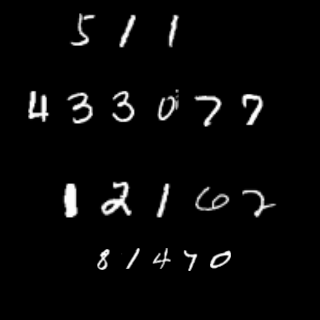 511
433077
12162
81470